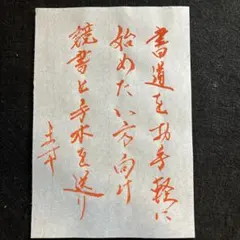 書道をお手軽に
始めたい方向け
競書と手本を送り
ます